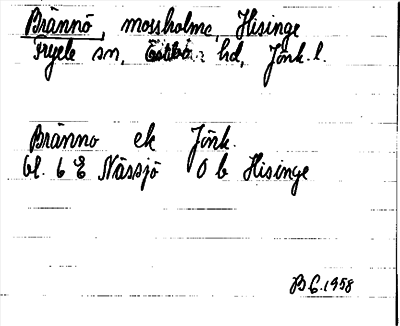 Brännö, mossholme, Hisinge
Fryele sn, Östbo hd, Jönk. l.
Bränno ek Jönk.
bl. 6 E Nässjö O b Hisinge
B G. 1958